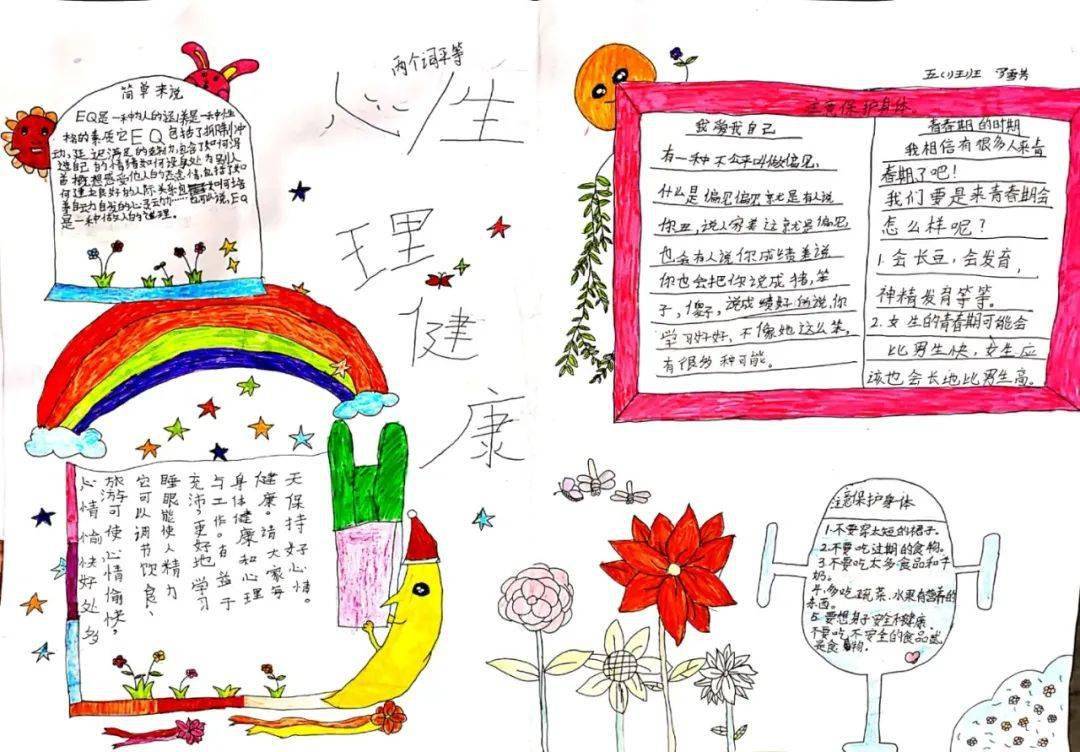 简单来说
EQ是一种为人的涵养是一种性
格的素质它EQ包括了抑制冲
动,延迟满足的克制力,包含了如何调
适自己的情绪如何设身处为别人
着想感受他人的 情,包括了如
何建立良好的人际关系包括如何培
养自动自发的心灵动力……也可以说,EQ
是一种做人的道理。
两个词平等
心/生
理
健
康
心情愉快好处多
旅游可使心情愉快,
它可以调节饮食、
睡眠能使人精力
充沛,更好地学习
与工作。有益于
身体健康和心理
健康。请大家每
天保持好心情。
五(1)班
注意保护身体
我爱我自己
有一种不公平叫做偏见
什么是偏见偏见就是有人说
你丑,说人家美这就是偏见
也会有人说你成绩差说
你也会把你说成猪,笨
子,傻子,说成绩好的说,你
学习好好,不像她这么笨,
有很多种可能。
青春期的时期
我相信有很多人来青
春期了吧!
我们要是来青春期会
怎么样呢?
1.会长豆,会发育,
神精发育等等。
2.女生的青春期可能会
比男生快,女生应
该也会长地比男生高。
注意保护身体
1.不要穿太短的裙子。
2.不要吃过期的食物。
3.不要吃太多食品和牛
奶。
4.多吃蔬菜.水果有营养的
东西。
5.要想身子安全和健康.
不要吃不安全的食品或
是食物。